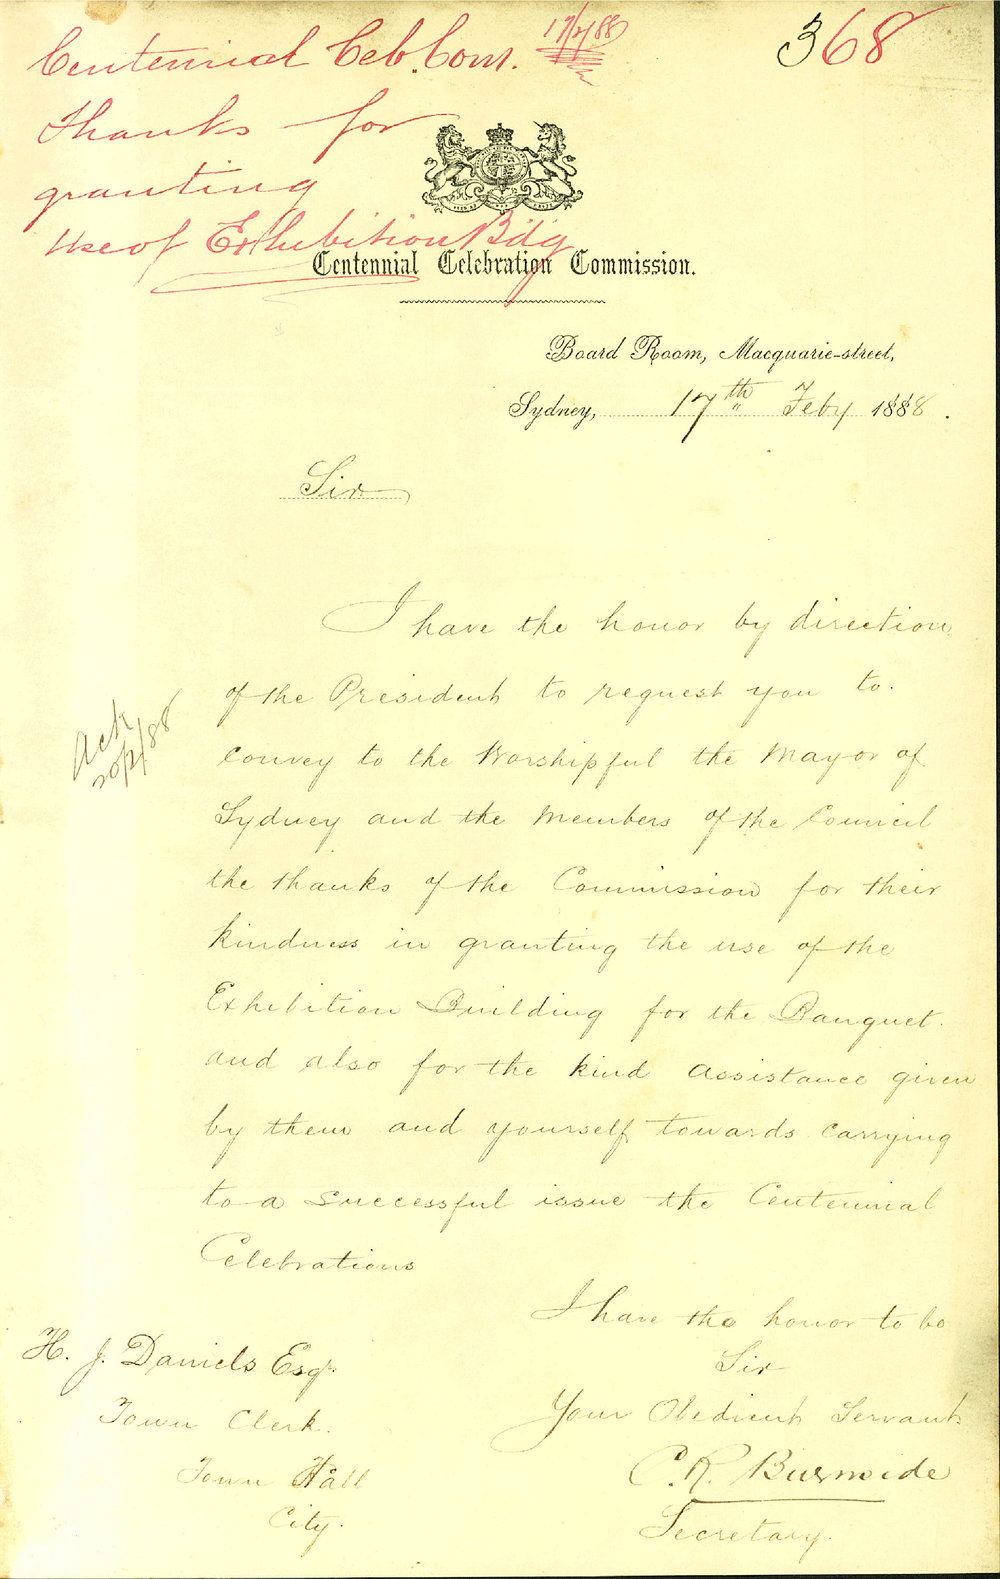 Centennial Celeb. Com. 17/2/88
368
Thanks for
granting
Use of Exhibition Bdg
Centennial Celebration Commission.
Board Room, Macquarie-street,
Sydney, 17th Feby 1888.
Sir
I have the honor by direction
of the President to request you to
convey to the Worshipful the Mayor of
Sydney and the Members of the Council
the thanks of the Commission for their
kindness in granting the use of the
Exhibition Building for the Banquet.
and also for the kind assistance given
by them and yourself towards carrying
to a successful issue the Centennial
Celebrations
Ack
20/2/88
I have the honor to be
Sir
Your Obedient Servant
C. R. Burnside
Secretary.
H. J. Daniels Esqr.
Town Clerk.
Town Hall
City.